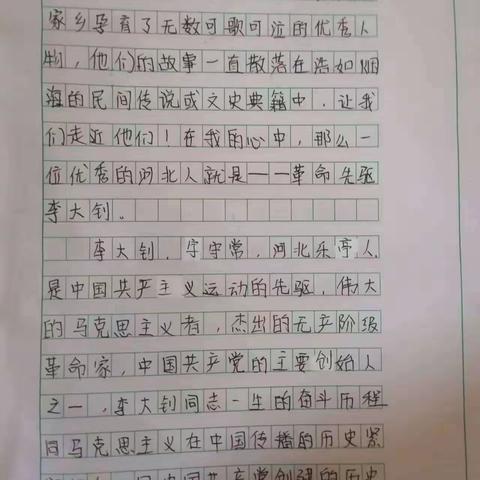 家乡孕育了无数可歌可泣的优秀人
物，他们的故事一直散落在浩如烟
海的民间传说或文史典籍中，让我
们走近他们！在我的心中，那么一
位优秀的河北人就是——革命先驱
李大钊。
李大钊，字守常，河北乐亭人，
是中国共产主义运动的先驱，伟大
的马克思主义者，杰出的无产阶级
革命家，中国共产党的主要创始人
之一，李大钊同志一生的奋斗历程
同马克思主义在中国传播的历史紧
同中国共产党创建的历史